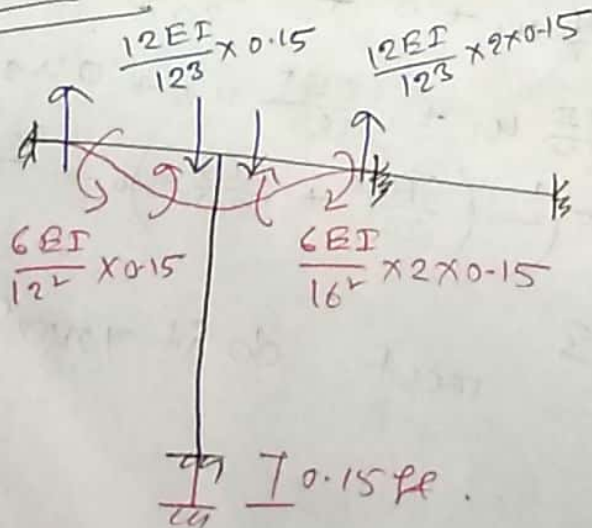 12EI/12³ × 0.15
12EI/12³ × 2 × 0.15
6EI/12² × 0.15
6EI/16² × 2 × 0.15
0.15 ft.